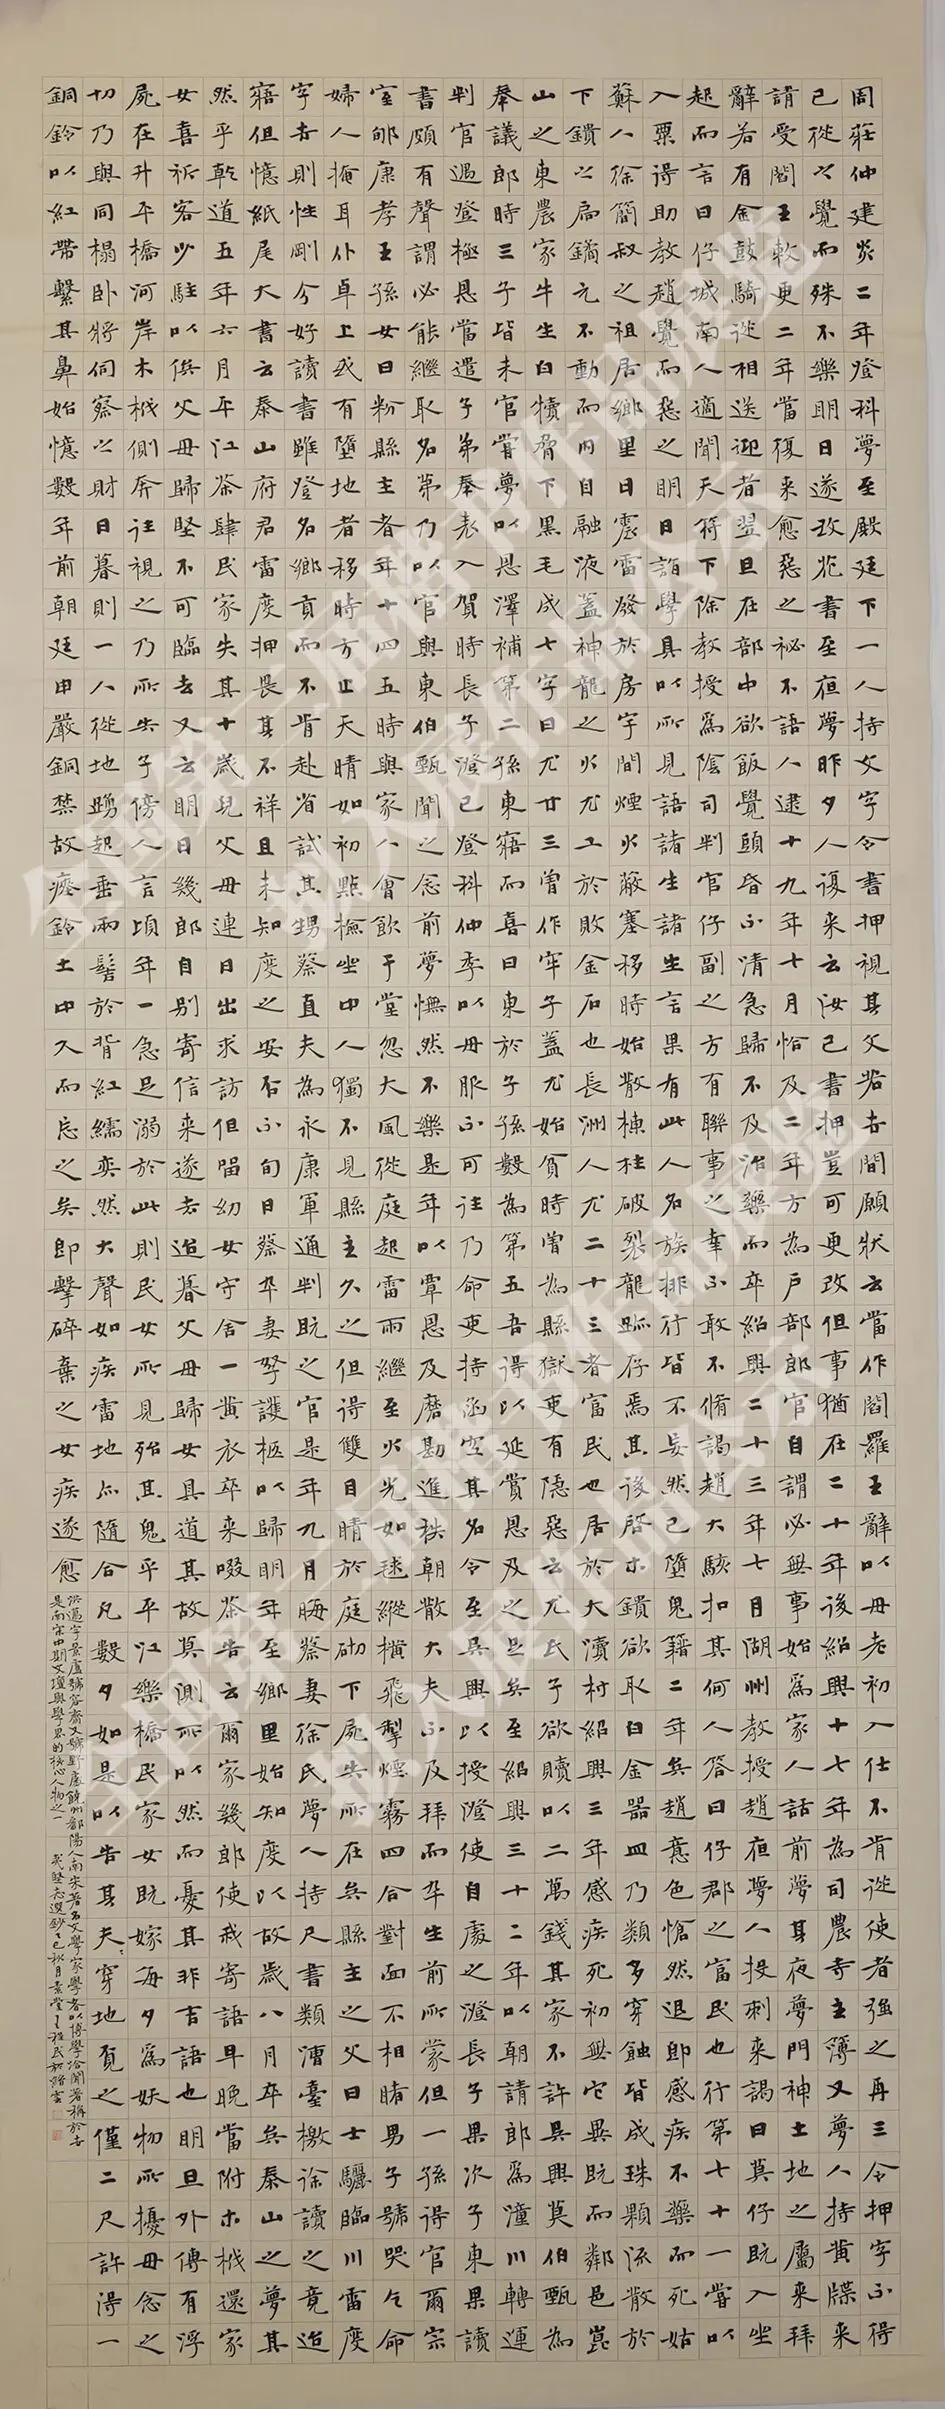 周莊仲建炎二年登科夢至殿廷下一人持文字令書押視其文若世間願狀云當作閻羅王辭以母老初入仕不肯從使者强之再三令押字不得
已從之覺而殊不樂明日遂改花書至夜夢昨夕人復来云汝已書押豈可更改但事猶在二十年後紹興十七年為司農寺主簿又夢人持黃牒来
請受閻王敕更二年當復来愈惡之秘不語人逮十九年十月恰及二年方為戶部郎官自謂必無事始為家人話前夢其夜夢門神土地之屬来拜
辭若有金鼓騎從相送迎者翌旦在部中欲飯覺頭昏不清急歸不及治藥而卒紹興二十三年七月湖州教授趙夜夢人投刺来謁曰莫仔既入坐
起而言曰仔城南人適聞天符下除教授為陰司判官仔副之方有聯事之幸不敢不脩謁趙大駭扣其何人答曰仔郡之富民也行第七十一嘗以
入粟得助教趙覺而惡之明日詣學具以所見語諸生諸生言果有此人名族排行皆不妄然已墮鬼籍二年矣趙意色愴然退即感疾不藥而死姑
蘇人徐簡叔之祖居鄉里日震雷發於房宇間煙火蔽塞移時始散棟柱破裂龍跡存焉其後啓木鎖欲取白金器皿乃類多穿蝕皆成珠顆流散於
下鎖之扃鐍元不動而內自融液蓋神龍之火尤工於敗金石也長洲人尤二十三者富民也居於大瀆村紹興三年感疾死初無它異既而鄰邑崑
山之東農家牛生白犢脅下黑毛成七字曰尤廿三曾作牢子蓋尤始貧時曾為縣獄吏有隱惡云尤氏子欲贖以二萬錢其家不許吳興莫伯甄為
奉議郎時三子皆未官嘗夢以恩澤補第二孫東寤而喜曰東於子孫數為第五吾得以延賞恩及之足矣至紹興三十二年以朝請郎為潼川轉運
判官遇登極恩當遣子弟奉表入賀時長子澄已登科仲季以母服不可往乃命吏持函空其名令至吳興以授澄使自處之澄長子果次子東果讀
書頗有聲謂必能繼取名第乃以官與東伯甄聞之念前夢憮然不樂是年以覃恩及磨勘進秩朝散大夫不及拜而卒生前所蒙但一孫得官爾宗
室邮康孝王孫女曰粉縣主者年十四五時與家人會飲于堂忽大風從庭起雷雨繼至火光如毬縱横飛掣煙霧四合對面不相睹男子號哭乞命
婦人掩耳仆卓上或有墮地者移時方止天晴如初點檢坐中人獨不見縣主久之但得雙目睛於庭砌下屍失所在矣縣主之父曰士驪臨川雷度
字世則性剛介好讀書雖登名鄉貢而不肯赴省試其甥蔡直夫為永康軍通判既之官是年九月晦蔡妻徐氏夢人持尺書類漕臺檄徐讀之竟迨
寤但憶紙尾大書云泰山府君雷度押畏其不祥且未知度之安否不旬日蔡卒妻孥護柩以歸明年至鄉里始知度以故歲八月卒矣泰山之夢其
然乎乾道五年六月平江茶肆民家失其十歲兒父母連日出求訪但留幼女守舍一黃衣卒来啜茶告云爾家幾郎使我寄語早晚當附木栰還家
女喜祈客少駐以俟父母歸堅不可臨去又云明日幾郎自別寄信来遂去迨暮父母歸女具道其故莫測所以然而憂其非吉語也明旦外傳有浮
屍在升平橋河岸木栰側奔往視之乃所失子傍人言頃年一急足溺於此則民女所見殆其鬼乎平江樂橋民家女既嫁每夕為妖物所擾母念之
切乃與同榻臥將伺察之財日暮則一人從地踴起垂兩髻於背紅繻奕然大聲如疾雷地亦隨合凡數夕如是以告其夫穿地覓之僅二尺許得一
銅鈴以紅帶繫其鼻始憶數年前朝廷申嚴銅禁故瘞鈴土中久而忘之矣即擊碎棄之女疾遂愈
洪邁字景盧號容齋又號野處饒州鄱陽人南宋著名文學家學者以博學洽聞著稱於世
是南宋中期文壇與學界的核心人物之一 夷堅志選鈔乙巳秋月素堂程民於縉雲
全国第三届楷书作品展览
拟入展作品公示
全国第三届楷书作品展览
拟入展作品公示